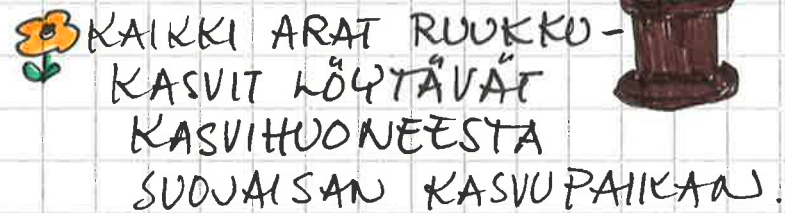 KAIKKI ARAT RUUKKU-
KASVIT LÖYTÄVÄT
KASVIHUONEESTA
SUOJAISAN KASVUPAIKAN.